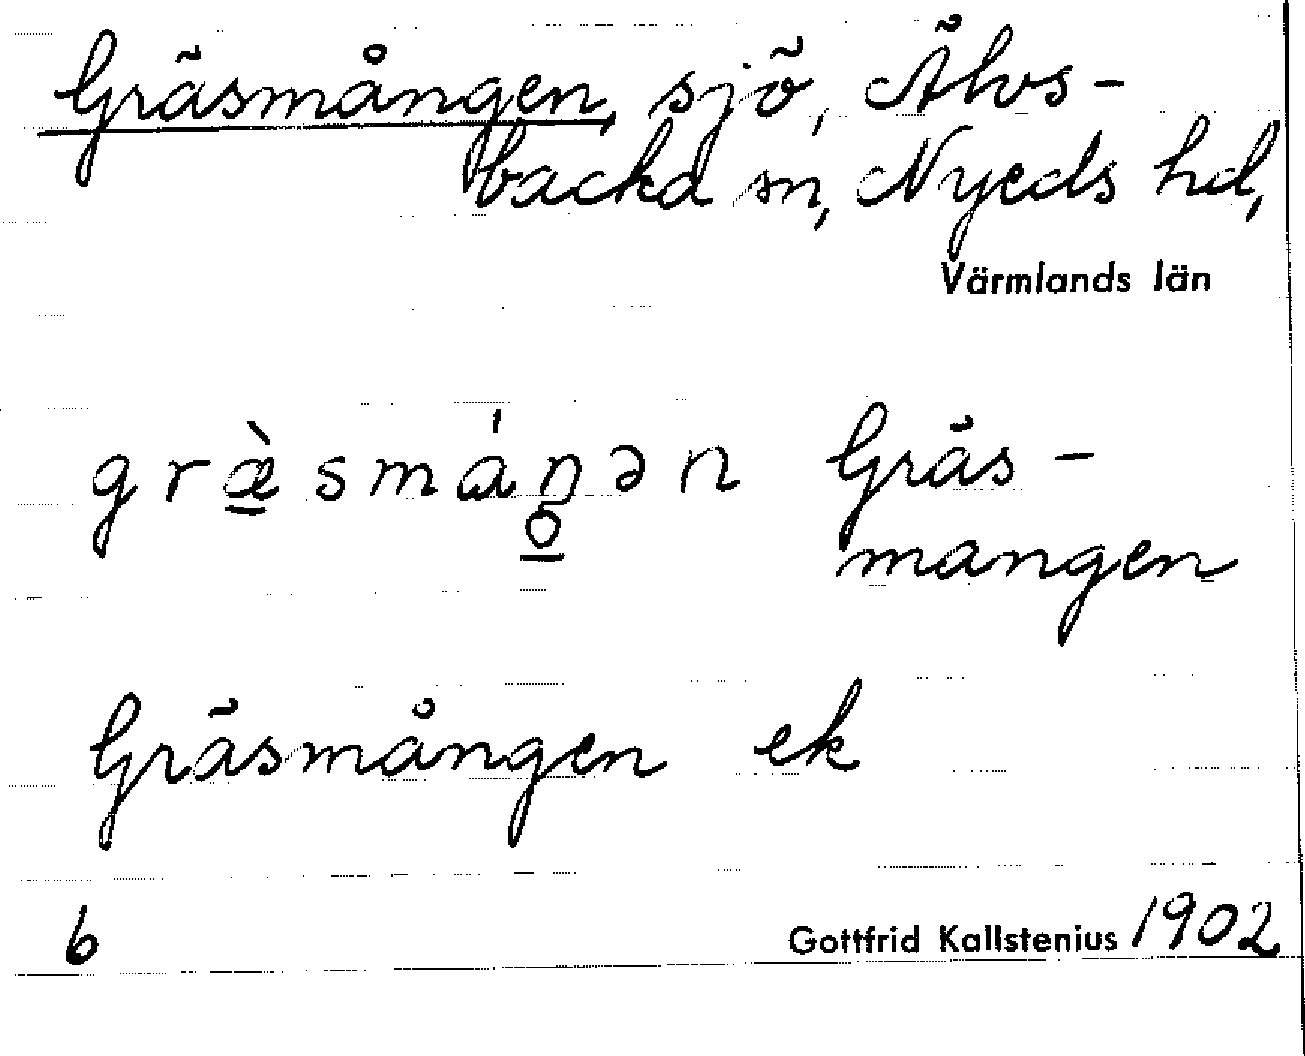 Gräsmången, sjö, Älvs-
backa sn, Nyeds hd,
Värmlands län
græ̀smáŋən Gräs-
mangen
o
Gräsmången ek
6 Gottfrid Kallstenius 1902